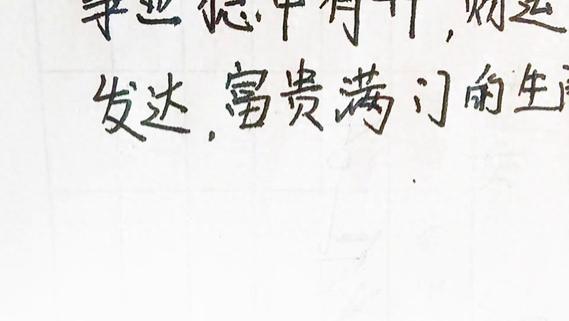 事业稳中有升，财运
发达，富贵满门的生